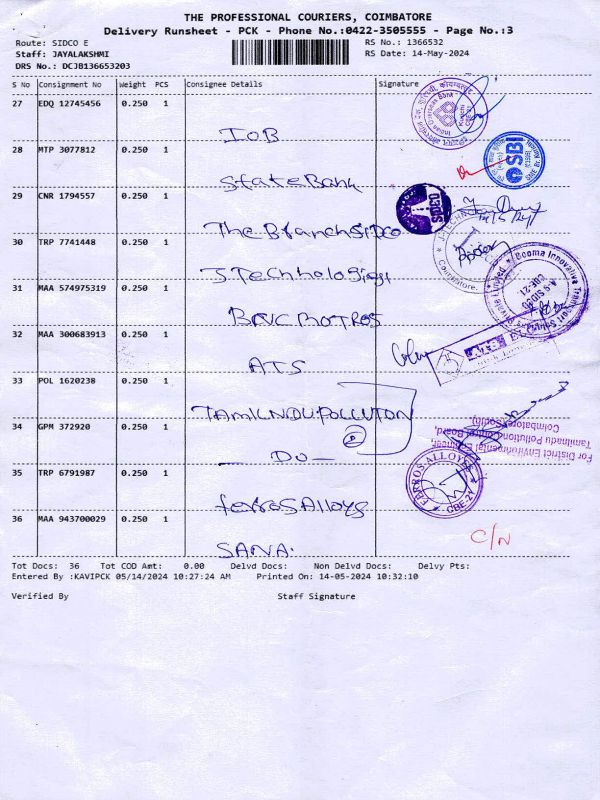 THE PROFESSIONAL COURIERS, COIMBATORE
Delivery Runsheet - PCK - Phone No.:0422-3505555 - Page No.:3
Route: SIDCO E RS No.: 1366532
Staff: JAYALAKSHMI RS Date: 14-May-2024
DRS No.: DCJB136653203
S No Consignment No Weight PCS Consignee Details Signature
27 EDQ 12745456 0.250 1
IOB
28 MTP 3077812 0.250 1
SBI
State Bank
29 CNR 1794557 0.250 1
The Branch Sidco
30 TRP 7741448 0.250 1
Coimbatore.
J Technologies
Booma Innovative Transport
A-5 SIDCO
CBE-21
31 MAA 574975319 0.250 1
32 MAA 300683913 0.250 1
ATS
33 POL 1620238 0.250 1
TAMILNDU POLLUTON
34 GPM 372920 0.250 1
For District Environmental Engineer,
Tamilnadu Pollution Control Board,
Coimbatore (South)
DO
35 TRP 6791987 0.250 1
FARROS ALLOYS
CBE-21
ferros Alloys
36 MAA 943700029 0.250 1
C/N
SANA.
Tot Docs: 36 Tot COD Amt: 0.00 Delvd Docs: Non Delvd Docs: Delvy Pts:
Entered By :KAVIPCK 05/14/2024 10:27:24 AM Printed On: 14-05-2024 10:32:10
Verified By Staff Signature